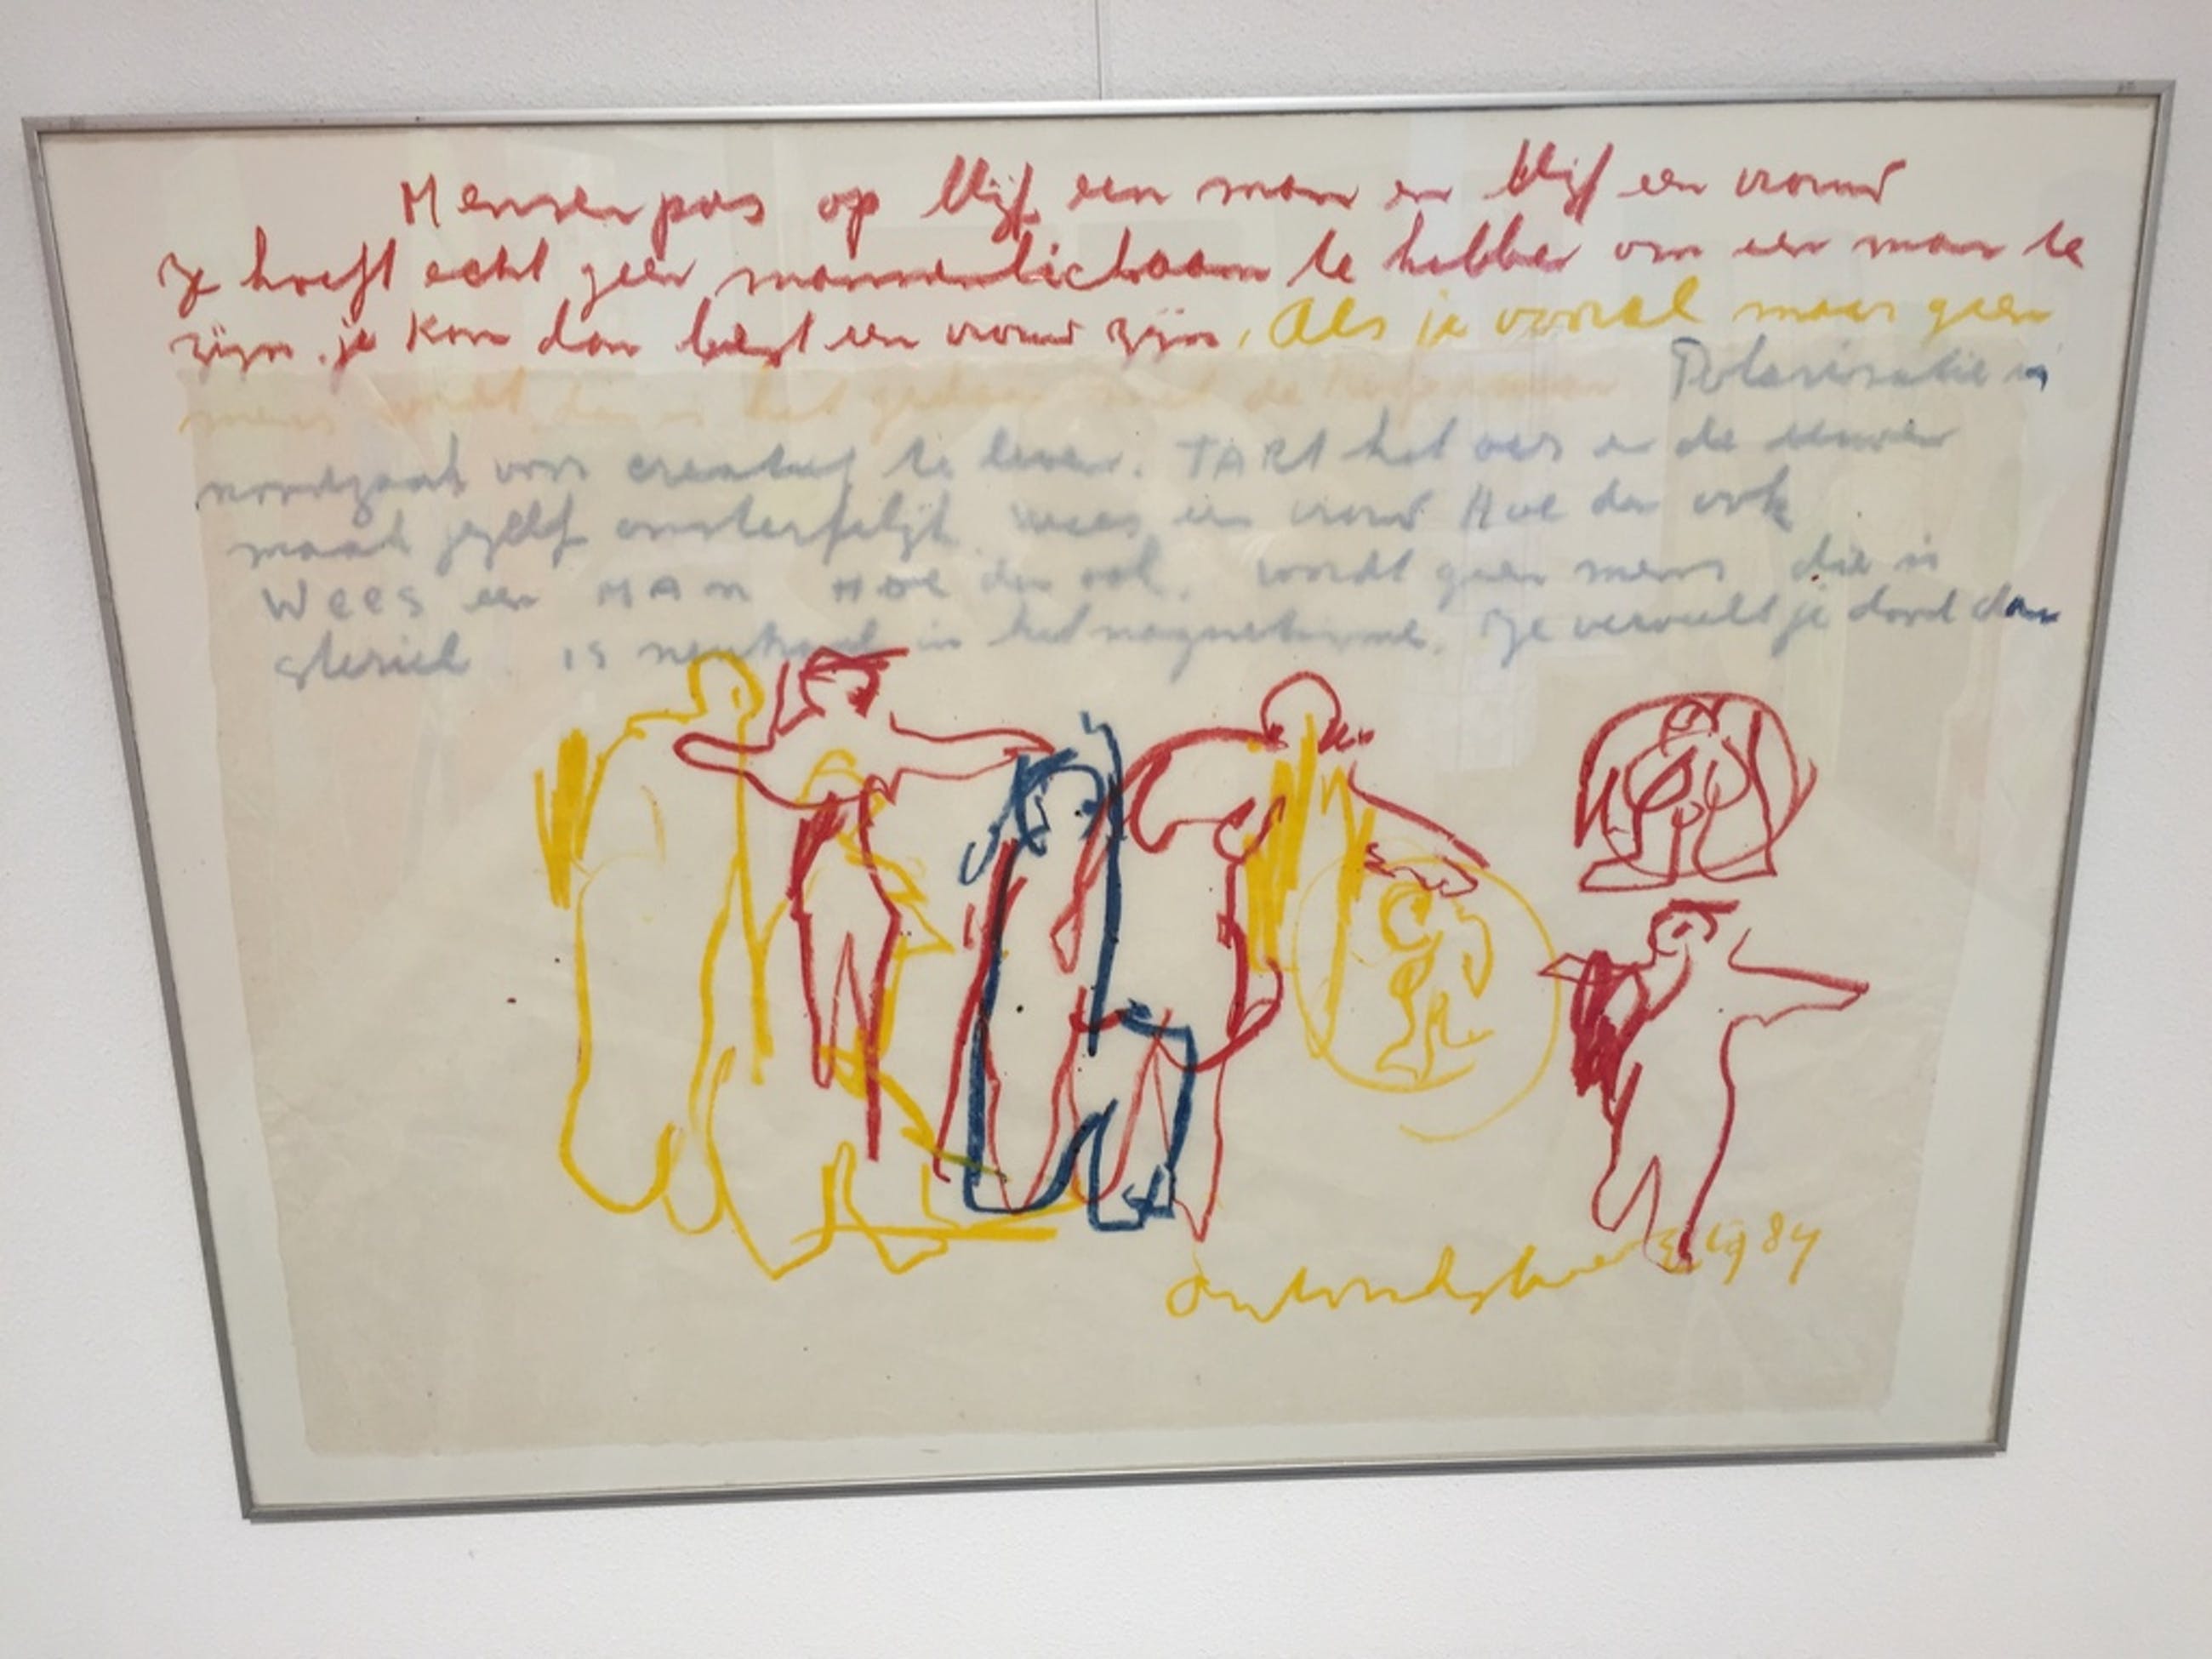 Mensen pas op blijf een man en blijf een vrouw
Je hoeft echt geen mannenlichaam te hebben om een man te
zijn. je kan dan best een vrouw zijn, Als je vooral maar geen
mens wordt dan is het gedaan met de Polarisatie is
noodzaak voor creatief te leven. TART het oer en de eeuwen
maak jezelf onsterfelijk wees een vrouw Hoe dan ook
Wees een MAN HOE dan ook. wordt geen mens die is
steriel is neutraal in het magnetisme. Je verveelt je dood dan
1984